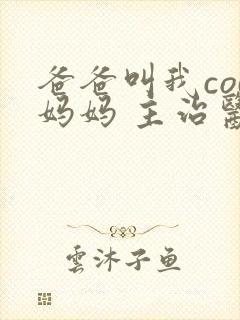 爸爸叫我co
妈妈 主治
雲沐子鱼